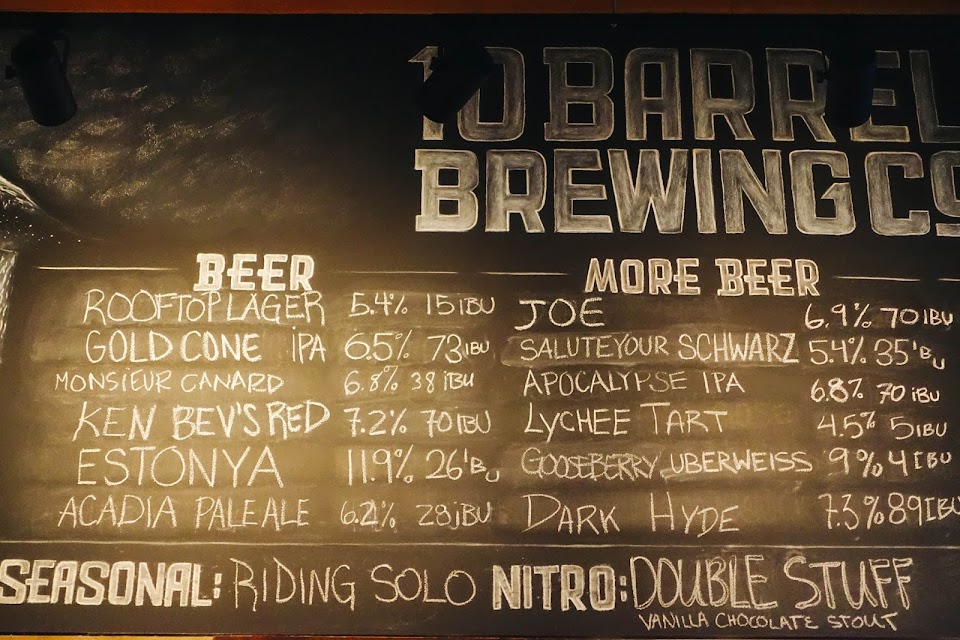 10 BARREL
BREWING CO
BEER
ROOFTOP LAGER 5.4% 15 IBU
GOLD CONE IPA 6.5% 73 IBU
MONSIEUR CANARD 6.8% 38 IBU
KEN BEV'S RED 7.2% 70 IBU
ESTONYA 11.9% 26 IBU
ACADIA PALE ALE 6.2% 28 IBU
MORE BEER
JOE 6.9% 70 IBU
SALUTE YOUR SCHWARZ 5.4% 35 IBU
APOCALYPSE IPA 6.8% 70 IBU
LYCHEE TART 4.5% 5 IBU
GOOSEBERRY UBERWEISS 9% 4 IBU
DARK HYDE 7.3% 89 IBU
SEASONAL: RIDING SOLO NITRO: DOUBLE STUFF
VANILLA CHOCOLATE STOUT